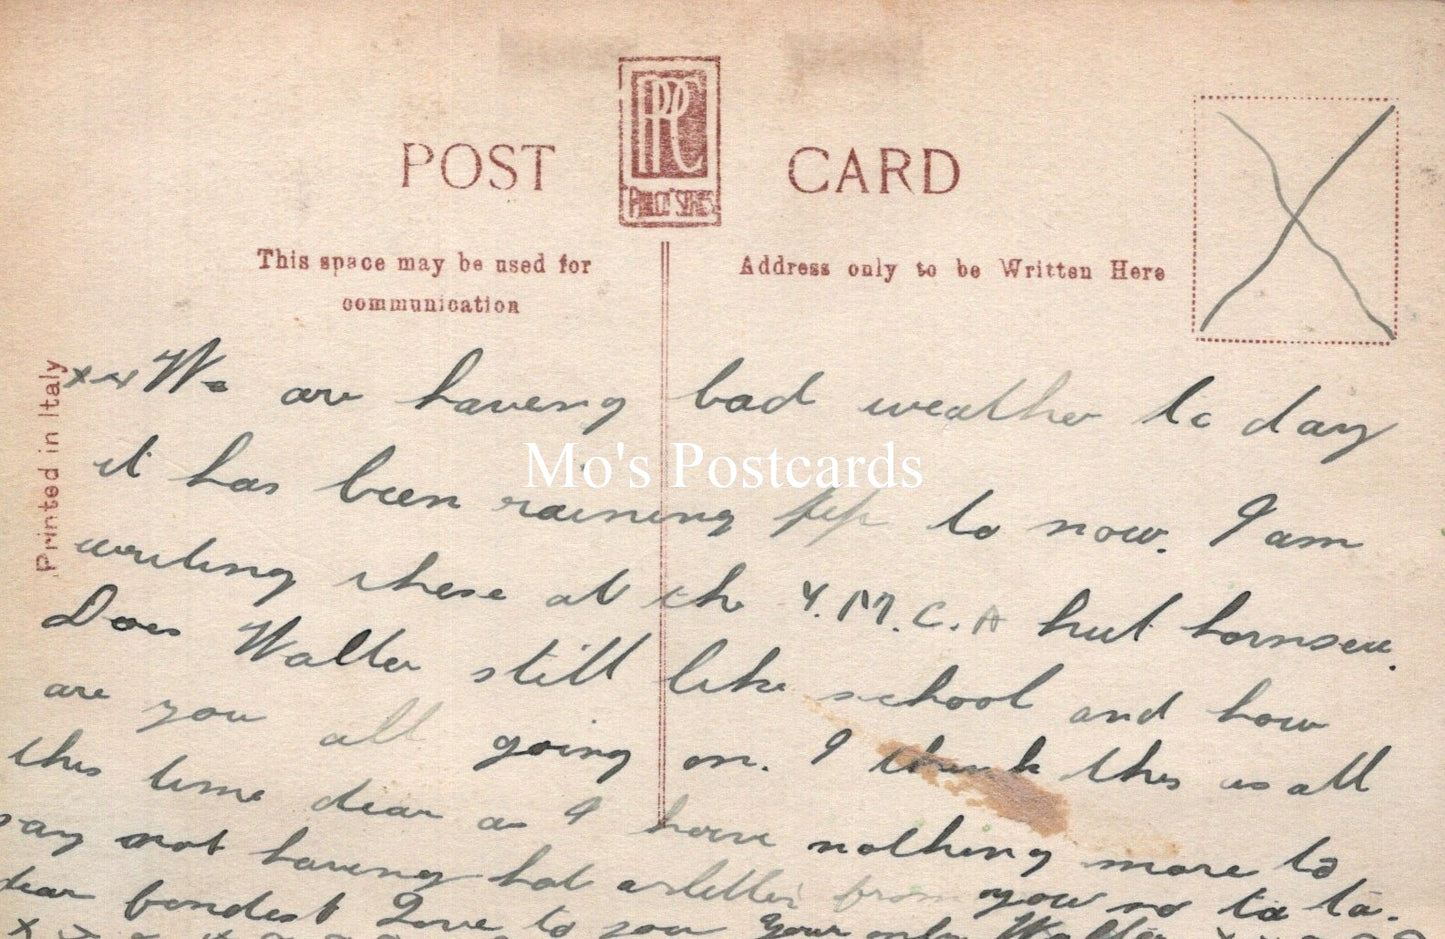 POST CARD
RPPC
"PHILCO" SERIES
This space may be used for
communication
Address only to be Written Here
Printed in Italy
x x We are having bad weather to day
it has been raining up to now. I am
writing these at the Y.M.C.A hut hornsea.
Does Walter still like school and how
are you all going on. I think this is all
this time dear as I have nothing more to
say not having had a letter from you so ta ta.
dear fondest Love to you Your only Walter x x
Mo's Postcards